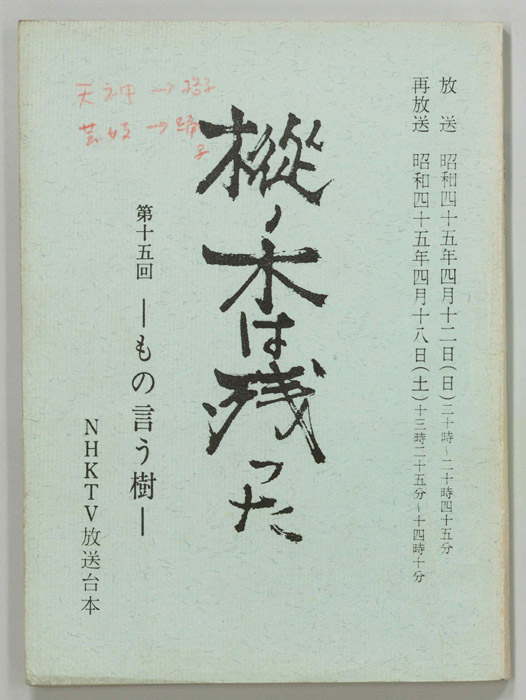 放送 昭和四十五年四月十二日(日)二十時~二十時四十五分
再放送 昭和四十五年四月十八日(土)十三時二十五分~十四時十分
樅ノ木は残った
第十五回 ―もの言う樹―
NHKTV放送台本
天神→
芸妓→